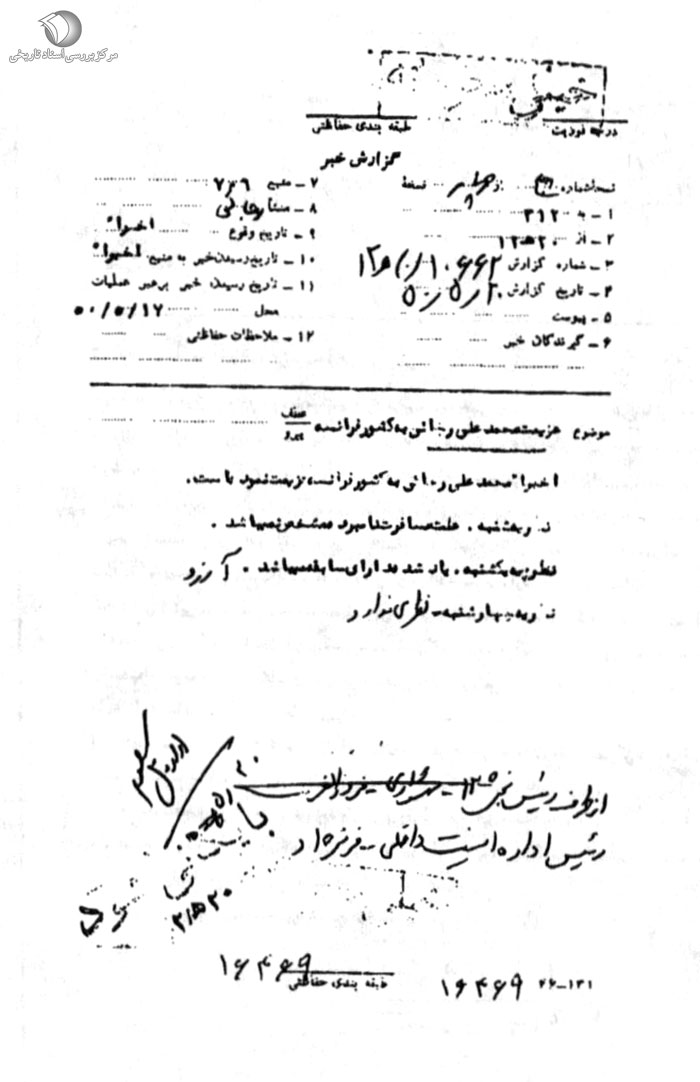 مرکز بررسی اسناد تاریخی
خیلی
درجه فوریت
طبقه بندی حفاظتی
گزارش خبر
نسخه شماره از چهار نسخه
۱ - به ۳۱۲
۲ - از ۲۰ ه‍ ۱۲
۳ - شماره گزارش ۱۰۶۶۲
۴ - تاریخ گزارش
۵ - پیوست
۶ - گیرندگان خبر
۷ - منبع ۷۳۹
۸ - منشاء
۹ - تاریخ وقوع اخیراً
۱۰ - تاریخ رسیدن خبر به منبع اخیراً
۱۱ - تاریخ رسیدن خبر برهبر عملیات
محل ۵۰/۵/۱۷
۱۲ - ملاحظات حفاظتی
موضوع عزیمت محمد علی رجائی به کشور فرانسه
اخیراً محمد علی رجائی به کشور فرانسه عزیمت نموده است.
نظریه شنبه. علت مسافرت نامبرده مشخص نمیباشد.
نظریه یکشنبه. یاد شده دارای سابقه میباشد. آرزو
نظریه چهارشنبه - نظری ندارد
از طرف رئیس بخش
رئیس اداره امنیت داخلی -
۱۶۴۶۹
طبقه بندی حفاظتی
۱۶۴۶۹
۲۶-۱۳۱